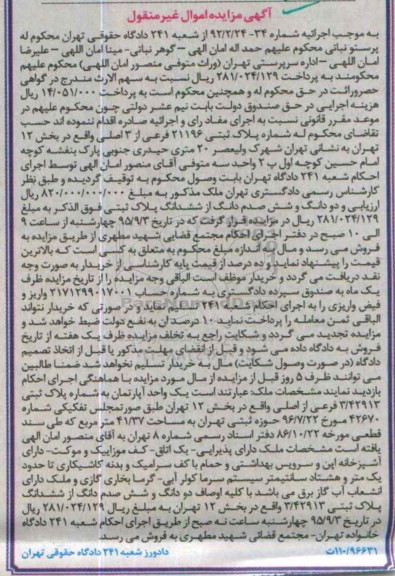 آگهی مزایده اموال غیر منقول
به موجب اجرائیه شماره ۳۴- ۹۲/۲/۲۴ از شعبه ۲۴۱ دادگاه حقوقی تهران محکوم له
پرستو نباتی محکوم علیهم حمد اله امان الهی – گوهر نباتی- مینا امان اللهی – علیرضا
امان اللهی – اداره سرپرستی تهران (وراث متوفی منصور امان اللهی) محکوم علیهم
محکومند به پرداخت ۲۸۱/۰۲۴/۱۲۹ ریال نسبت به سهم الارث مندرج در گواهی
حصروراثت در حق محکوم له و همچنین محکوم است به پرداخت ۱۴/۰۵۱/۰۰۰ ریال
هزینه اجرایی در حق صندوق دولت بابت نیم عشر دولتی چون محکوم علیهم در
موعد مقرر قانونی نسبت به اجرای مفاد رای و اجرائیه صادره اقدام ننموده اند حسب
تقاضای محکوم له شماره پلاک ثبتی ۲۱۱۹۶ فرعی از ۳ اصلی واقع در بخش ۱۲
تهران به نشانی تهران شهرک ولیعصر ۲۰ متری حیدری جنوبی پارک بنفشه کوچه
امام حسین کوچه اول پ ۲ واحد سه متوفی آقای منصور امان الهی توسط اجرای
احکام شعبه ۲۴۱ دادگاه تهران بابت وصول محکوم به توقیف گردیده و طبق نظر
کارشناس رسمی دادگستری تهران ملک مذکور به مبلغ ۸۲۰/۰۰۰/۰۰۰ ریال
ارزیابی و دو دانگ و شش صدم دانگ از ششدانگ پلاک ثبتی فوق الذکر به مبلغ
۲۸۱/۰۲۴/۱۲۹ ریال در مزایده قرار گرفت که در تاریخ ۹۵/۹/۳ چهارشنبه از ساعت ۹
الی ۱۰ صبح در دفتر اجرای احکام مجتمع قضایی شهید مطهری از طریق مزایده به
فروش می رسد و مال به اندازه مبلغ محکوم به متعلق به کسی است که بالاترین
قیمت را پیشنهاد نماید و ده درصد از قیمت پایه کارشناسی از خریدار به صورت وجه
نقد دریافت می گردد و خریدار موظف است الباقی وجه مزایده را از تاریخ مزایده ظرف
یک ماه به صندوق سپرده دادگستری به شماره حساب ۲۱۷۱۲۹۹۰۱۷۰۰۱ واریز و
فیش واریزی را به اجرای احکام شعبه ۲۴۱ تسلیم نماید و در صورتی که خریدار نتواند
الباقی ثمن معامله را پرداخت نماید ۱۰ درصدان به نفع دولت ضبط خواهد شد و
مزایده تجدید می گردد و شکایت راجع به تخلف مزایده ظرف یک هفته از تاریخ
فروش به دادگاه داده می شود و قبل از انقضای مهلت مذکور یا قبل از اتخاذ تصمیم
دادگاه (در صورت وصول شکایت) مال به خریدار تسلیم نخواهد شد ضمنا طالبین
می توانند ظرف ۵ روز قبل از مزایده از مال مورد مزایده با هماهنگی اجرای احکام
بازدید نمایند مشخصات ملک: عبارتند است یک واحد آپارتمان به شماره پلاک ثبتی
۳/۴۲۹۱۳ فرعی از اصلی واقع در بخش ۱۲ تهران طبق صورتمجلس تفکیکی شماره
۴۲۶۷۰ مورخ ۹۶/۷/۲۲ حوزه ثبتی تهران به مساحت ۴۱/۳۷ متر مربع که طی سند
قطعی مورخه ۸۶/۱۰/۲۲ دفتر اسناد رسمی شماره ۸ تهران به آقای منصور امان الهی
یافته است مشخصات ملک دارای پذیرایی- یک اتاق- کف موزاییک و موکت- دارای
آشپزخانه اپن و سرویس بهداشتی و حمام با کف سرامیک و بدنه کاشیکاری تا حدود
یک متر و هشتاد سانتیمتر سیستم سرما کولر آبی- گرما بخاری گازی و ملک دارای
انشعاب آب گاز برق می باشد با کلیه اوصاف دو دانگ و شش صدم دانگ از ششدانگ
پلاک ثبتی ۳/۴۲۹۱۳ واقع در بخش ۱۲ تهران به مبلغ ریال ۲۸۱/۰۲۴/۱۲۹ ریال
در تاریخ ۹۵/۹/۳ چهارشنبه ساعت نه صبح از طریق اجرای احکام شعبه ۲۴۱ دادگاه
خانواده تهران- مجتمع قضائی شهید مطهری به فروش می رسد.
۱۱۰/۹۶۶۳۱ت دادورز شعبه ۲۴۱ دادگاه حقوقی تهران